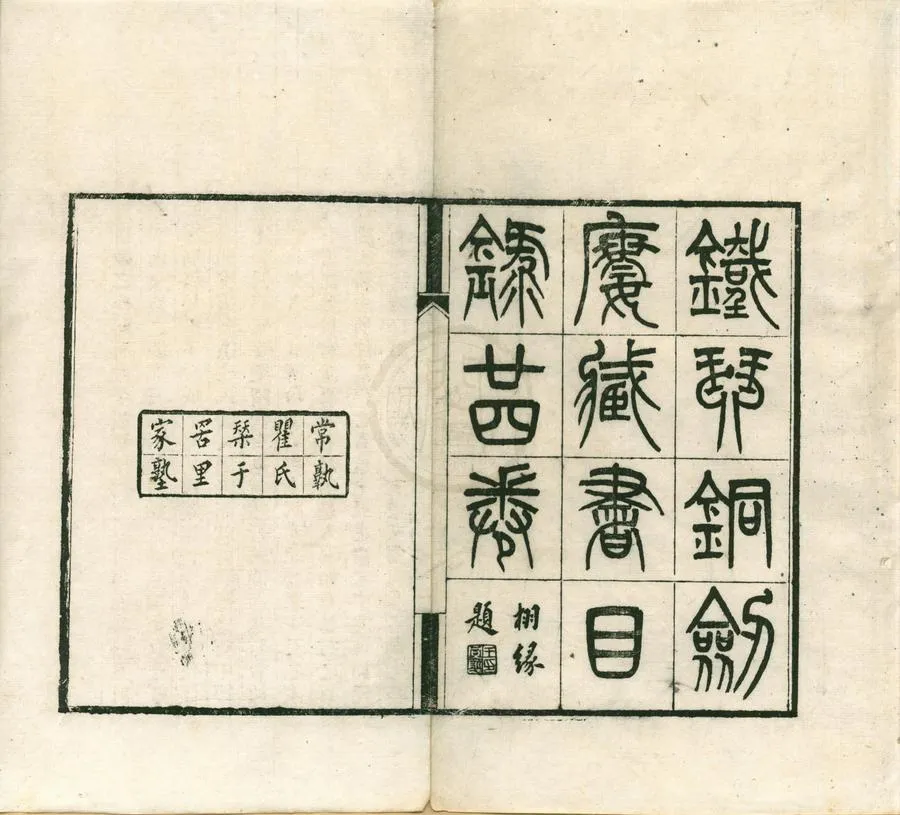 鐵琴銅劍
廔藏書目
錄廿四卷
栩緣
題
常孰
瞿氏
栞于
罟里
家塾